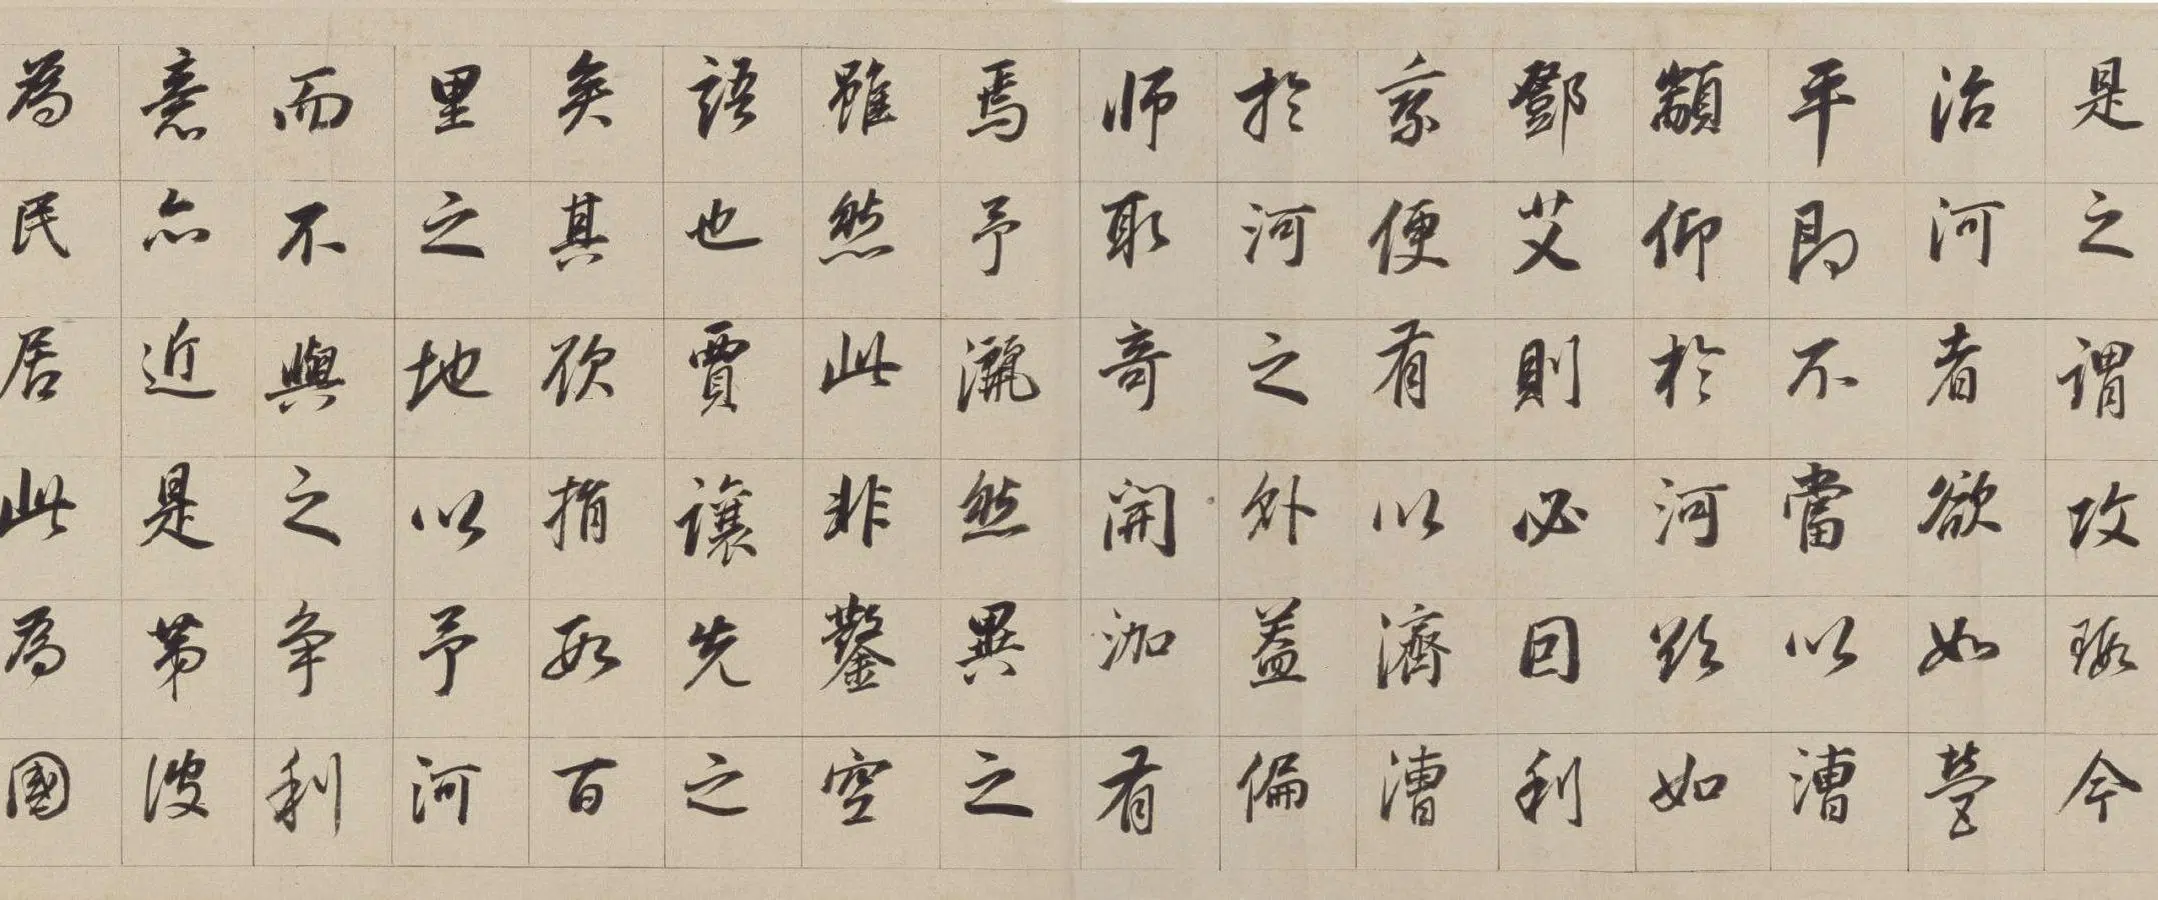 是之謂攻瑕今
治河者欲如營
平即不當以漕
顓仰於河欲如
鄧艾則必因利
乘便有以濟漕
於河之外蓋偏
師取奇開泇有
焉予灑然異之
雖然此非鑿空
語也賈讓先之
矣其欲捐數百
里之地以予河
而不與之爭利
意亦近是第彼
為民居此為國